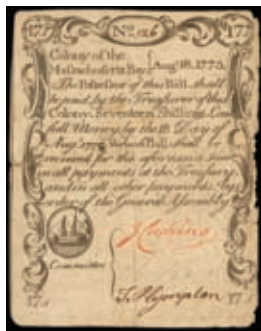 177 No 126 177
Colony of the
Massachusetts Bay { Aug 18, 1775.
The Possessor of this Bill shall
be paid by the Treasurer of this
Colony, Seventeen Shillings, Law
full Money by the 18 Day of
Aug which Bill shall be
received for the aforesaid sum
in all payments at the Treasury
and in all other payments by
order of the General Assembly
J Cushing
Committee
T. Plympton
177 177